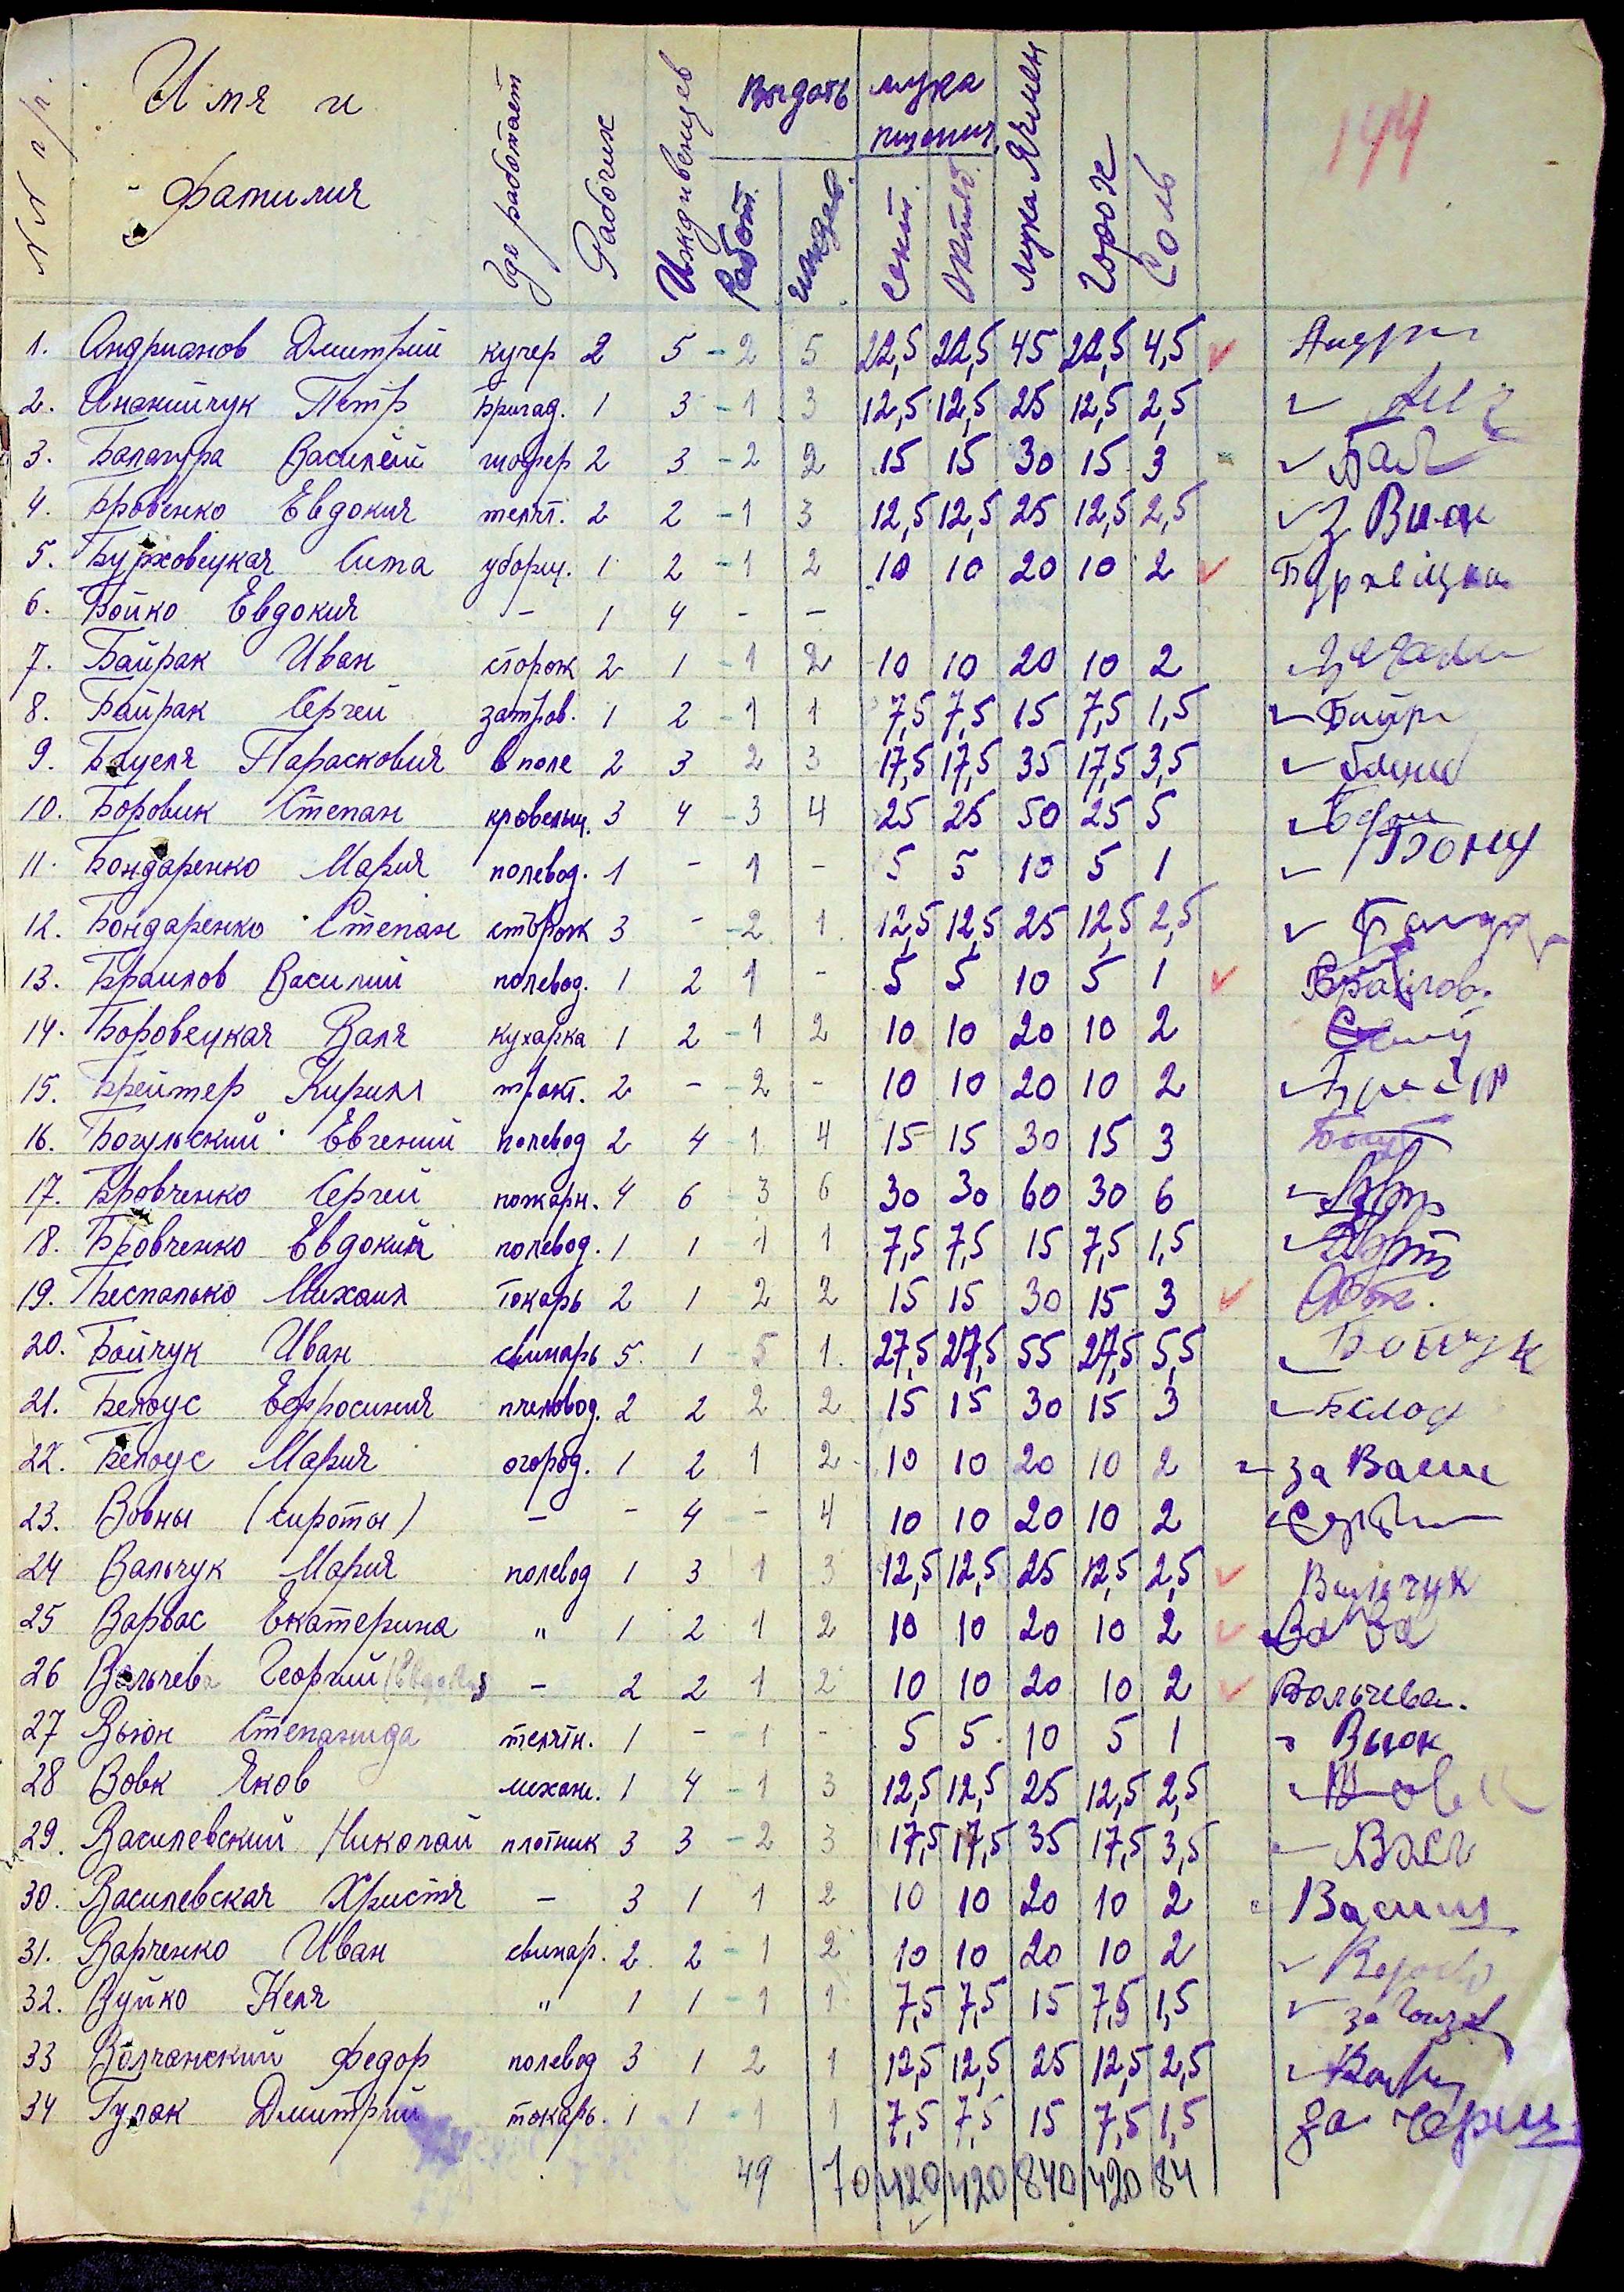 №№ п/п. Имя и фамилия Где работает Рабочих Иждивенцев Выдать Работ. иждев. мука пшенич. сент. октяб. мука ячмен горох Соль
194
1. Андрианов Дмитрий кучер 2 5 - 2 5 22,5 22,5 45 22,5 4,5 ✓ Андри
2. Ананийчук Петр бригад. 1 3 - 1 3 12,5 12,5 25 12,5 2,5 ✓
3. Балагура Василий шофер 2 3 - 2 2 15 15 30 15 3 ✓ Бал
4. Бровенко Евдокия телят. 2 2 - 1 3 12,5 12,5 25 12,5 2,5 ✓ З Вьюк
5. Бурховецкая Сима уборщ. 1 2 - 1 2 10 10 20 10 2 ✓ Бурхвіцка
6. Бойко Евдокия - 1 4 - -
7. Байрак Иван сторож 2 1 - 1 2 10 10 20 10 2
8. Байрак Сергей затров. 1 2 - 1 1 7,5 7,5 15 7,5 1,5 ✓ Байра
9. Бацеля Парасковия в поле 2 3 2 3 17,5 17,5 35 17,5 3,5 ✓
10. Боровик Степан кровельщ. 3 4 - 3 4 25 25 50 25 5 ✓
11. Бондаренко Мария полевод. 1 - 1 - 5 5 10 5 1 ✓ Бонд
12. Бондаренко Степан сторож 3 - - 2 1 12,5 12,5 25 12,5 2,5 ✓ Бонда
13. Браилов Василий полевод. 1 2 1 - 5 5 10 5 1 ✓ Браілов.
14. Боровецкая Валя кухарка 1 2 - 1 2 10 10 20 10 2
15. Брейтер Кирилл тракт. 2 - - 2 - 10 10 20 10 2 ✓
16. Богульский Евгений полевод 2 4 - 1 4 15 15 30 15 3
17. Бровченко Сергей пожарн. 4 6 3 6 30 30 60 30 6 ✓
18. Бровченко Евдокия полевод. 1 1 1 1 7,5 7,5 15 7,5 1,5 ✓
19. Беспалько Михаил токарь 2 1 2 2 15 15 30 15 3 ✓
20. Бойчук Иван свинарь 5. 1 - 5 1. 27,5 27,5 55 27,5 5,5 ✓ Бойчук
21. Белоус Ефросиния пчеловод. 2 2 2 2 15 15 30 15 3 ✓ Белоу
22. Белоус Мария огород. 1 2 1 2 10 10 20 10 2 за Васи
23. Вовны (сироты) - - 4 - 4 10 10 20 10 2 ✓
24 Вальчук Мария полевод 1 3 1 3 12,5 12,5 25 12,5 2,5 ✓ Вальчук
25 Варвас Екатерина " 1 2 1 2 10 10 20 10 2 ✓
26 Вольчева Георгий (Евдокия) - 2 2 1 2 10 10 20 10 2 ✓ Вольчева.
27 Вьюн Степанида телятн. 1 - - 1 - 5 5 10 5 1 Вьюн
28 Вовк Яков механ. 1 4 - 1 3 12,5 12,5 25 12,5 2,5 ✓ Вовк
29. Василевский Николай плотник 3 3 - 2 3 17,5 17,5 35 17,5 3,5 Васи
30. Василевская Христя - 3 1 1 2 10 10 20 10 2 Васил
31. Варченко Иван свинар. 2 2 - 1 2 10 10 20 10 2 ✓
32. Вуйко Келя " 1 1 - 1 1 7,5 7,5 15 7,5 1,5 ✓
33 Волчанский Федор полевод 3 1 2 1 12,5 12,5 25 12,5 2,5 ✓
34 Гулак Дмитрий токарь. 1 1 - 1 1 7,5 7,5 15 7,5 1,5 за
49 70 420 420 840 420 84